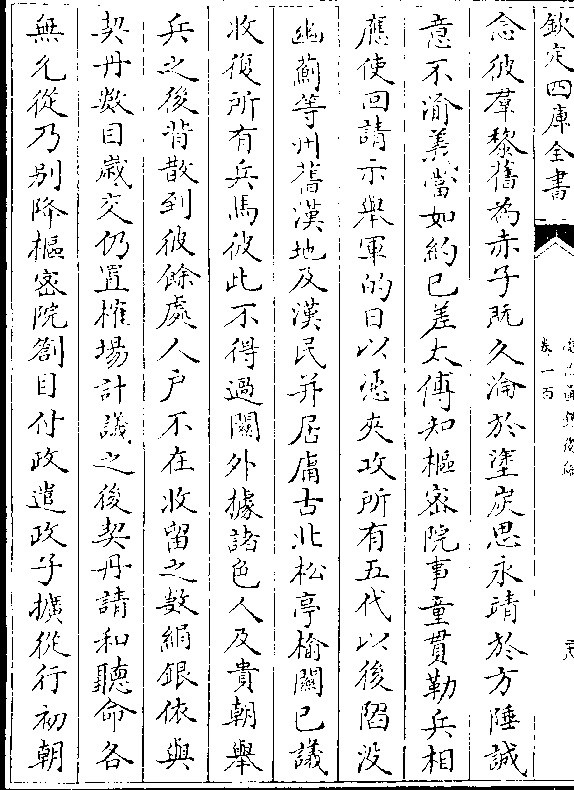 欽定四庫全書
卷一百
念彼羣黎舊為赤子既久淪於塗炭思永靖於方陲誠
意不渝義當如約已差太傅知樞密院事童貫勒兵相
應使回請示舉軍的日以憑夾攻所有五代以後陷没
幽薊等州舊漢地及漢民并居庸古北松亭榆關已議
收復所有兵馬彼此不得過關外據諸色人及貴朝舉
兵之後背散到彼餘處人户不在收留之數絹銀依與
契丹數目歲交仍置榷場計議之後契丹請和聽命各
無允從乃别降樞密院劄目付政遣政子擴從行初朝